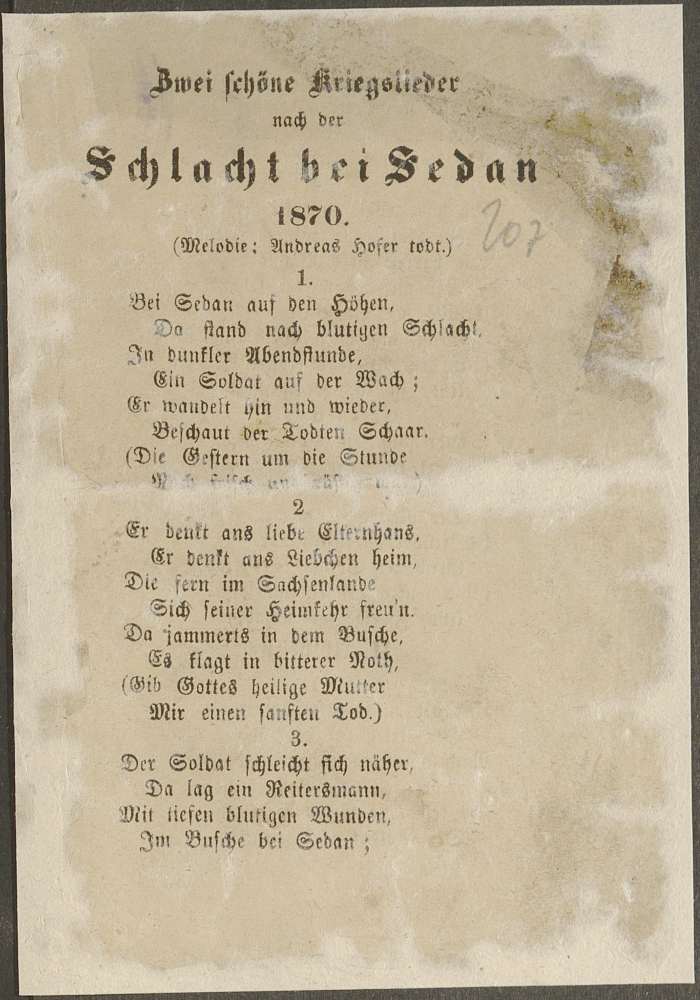 Zwei schöne Kriegslieder
nach der
Schlacht bei Sedan
1870.
(Melodie: Andreas Hofer todt.)
207
1.
Bei Sedan auf den Höhen,
Da stand nach blutigen Schlacht,
In dunkler Abendstunde,
Ein Soldat auf der Wach;
Er wandelt hin und wieder,
Beschaut der Todten Schaar.
(Die Gestern um die Stunde
2
Er denkt ans liebe Elternhans,
Er denkt ans Liebchen heim,
Die fern im Sachsenlande
Sich seiner Heimkehr freu'n.
Da jammerts in dem Busche,
Es klagt in bitterer Noth,
(Gib Gottes heilige Mutter
Mir einen sanften Tod.)
3.
Der Soldat schleicht sich näher,
Da lag ein Reitersmann,
Mit tiefen blutigen Wunden,
Im Busche bei Sedan;